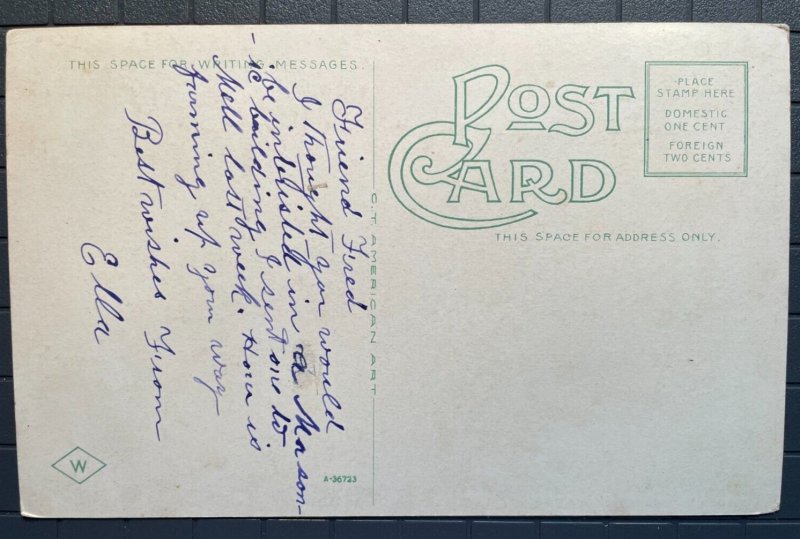 THIS SPACE FOR WRITING MESSAGES.
Friend Fred
I thought you would
be interisted in a Mason-
-ic building, I sent one to
Mell last week. How is
farming up your way
Best wishes From
Ella
W
A-36723
C.T. AMERICAN ART
POST CARD
THIS SPACE FOR ADDRESS ONLY.
PLACE
STAMP HERE
DOMESTIC
ONE CENT
FOREIGN
TWO CENTS